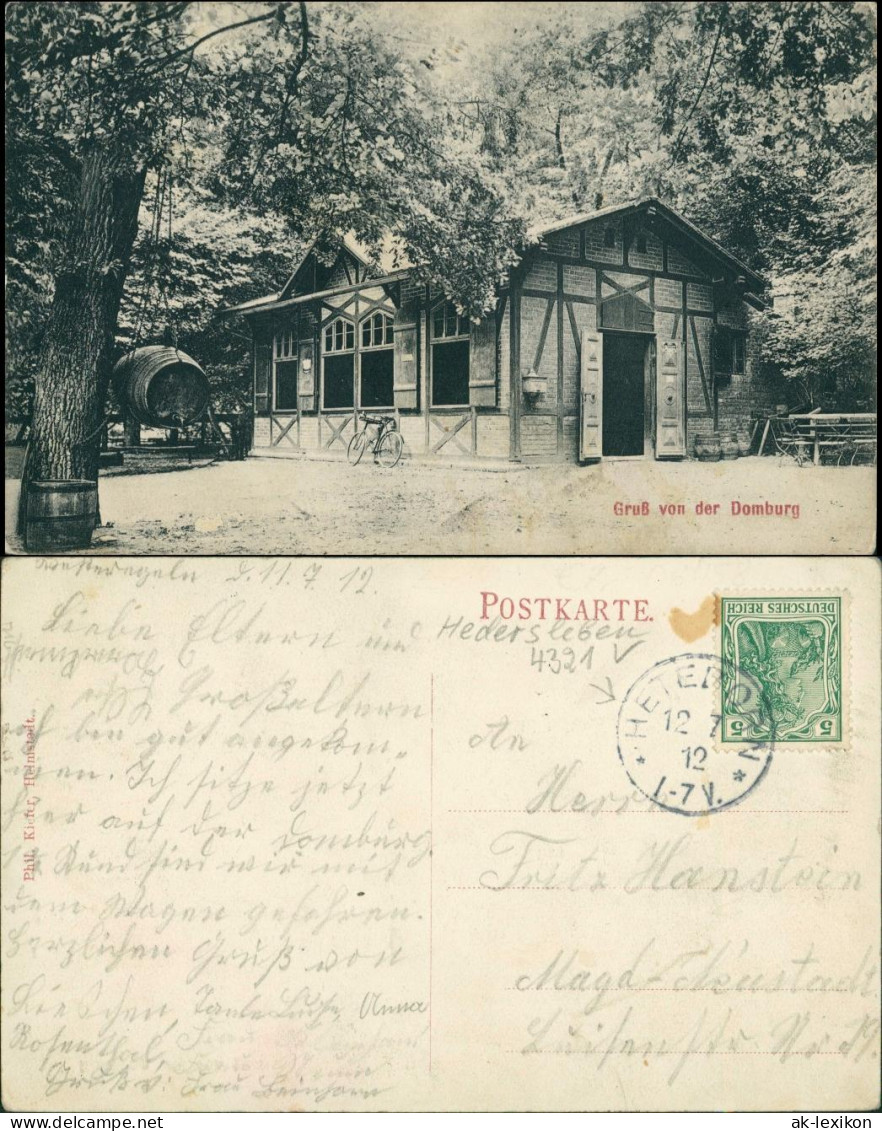 Gruß von der Domburg
Westeregeln d. 11. 7. 12.
Liebe Eltern und
Großeltern
bin gut angekom-
men. Ich sitze jetzt
hier auf der Domburg.
Stund sind wir mit
dem Wagen gefahren.
Herzlichen Gruß von
Lieschen, Tante Luise, Anna
Rosenthal,
Gruß v: Frau Beinhorn
Phil. Kiefer, Helmstadt.
POSTKARTE.
Hedersleben
4321
DEUTSCHES REICH
5 5
12 7
12
1-7 V.
An
Herrn
Fritz Hanstein
Magd-Neustadt
Luisenstr Nr 19.
ak-lexikon